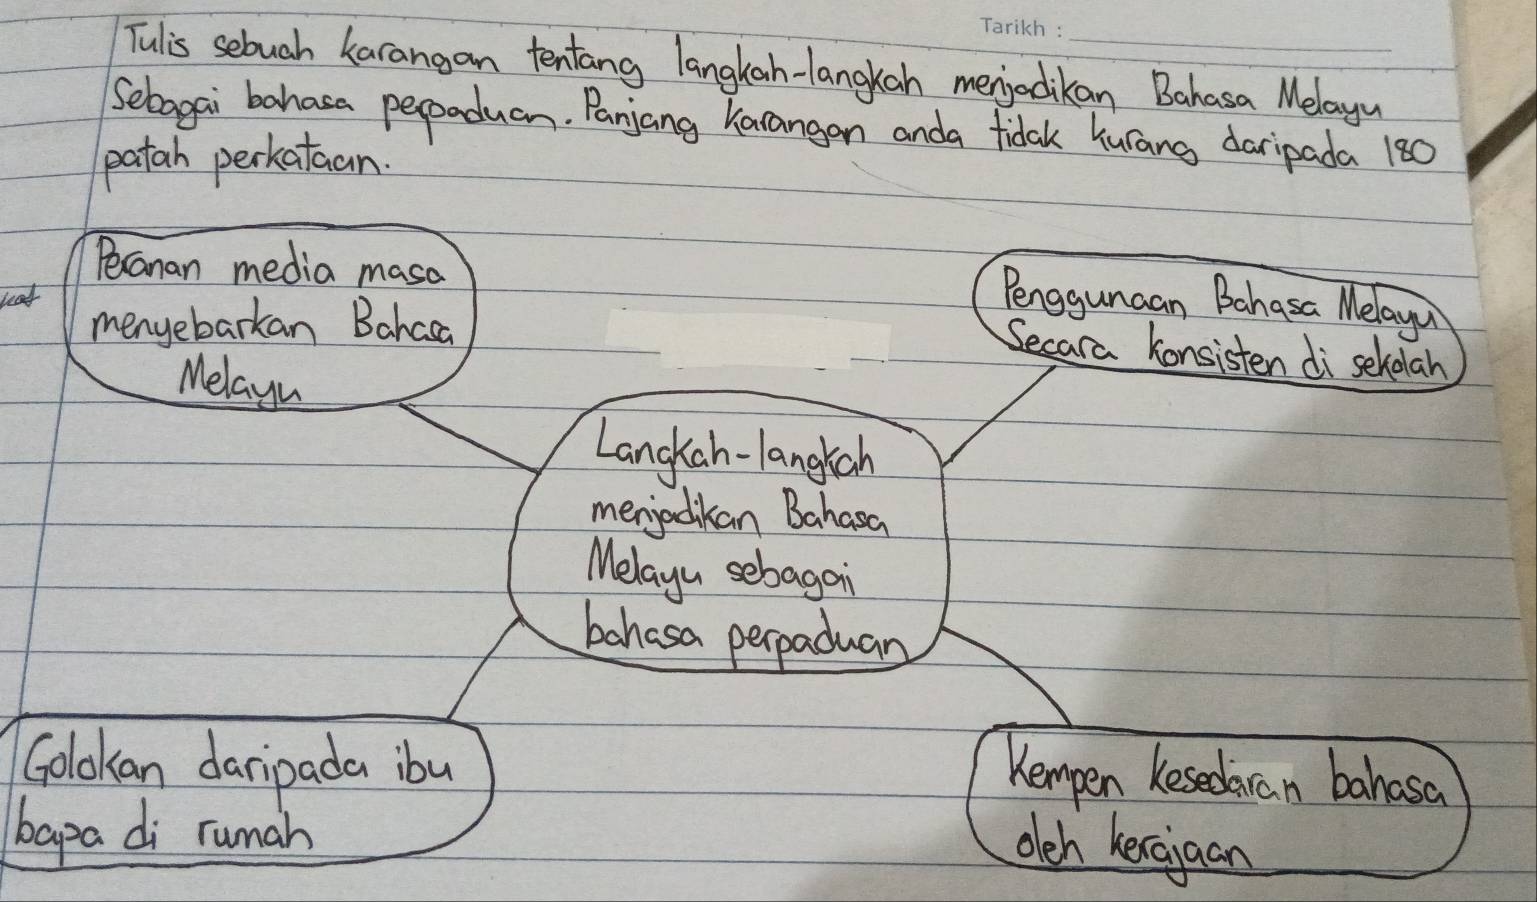 Tarikh :
Tulis sebuah karangan tentang langkah-langkah menjadikan Bahasa Melayu
sebagai bahasa perpaduan. Panjang karangan anda tidak kurang daripada 180
patah perkataan.
Peranan media masa
menyebarkan Bahasa
Melayu
Penggunaan Bahasa Melayu
secara konsisten di sekolah
Langkah-langkah
menjadikan Bahasa
Melayu sebagai
bahasa perpaduan
Golakan daripada ibu
bapa di rumah
Kempen kesedaran bahasa
oleh kerajaan